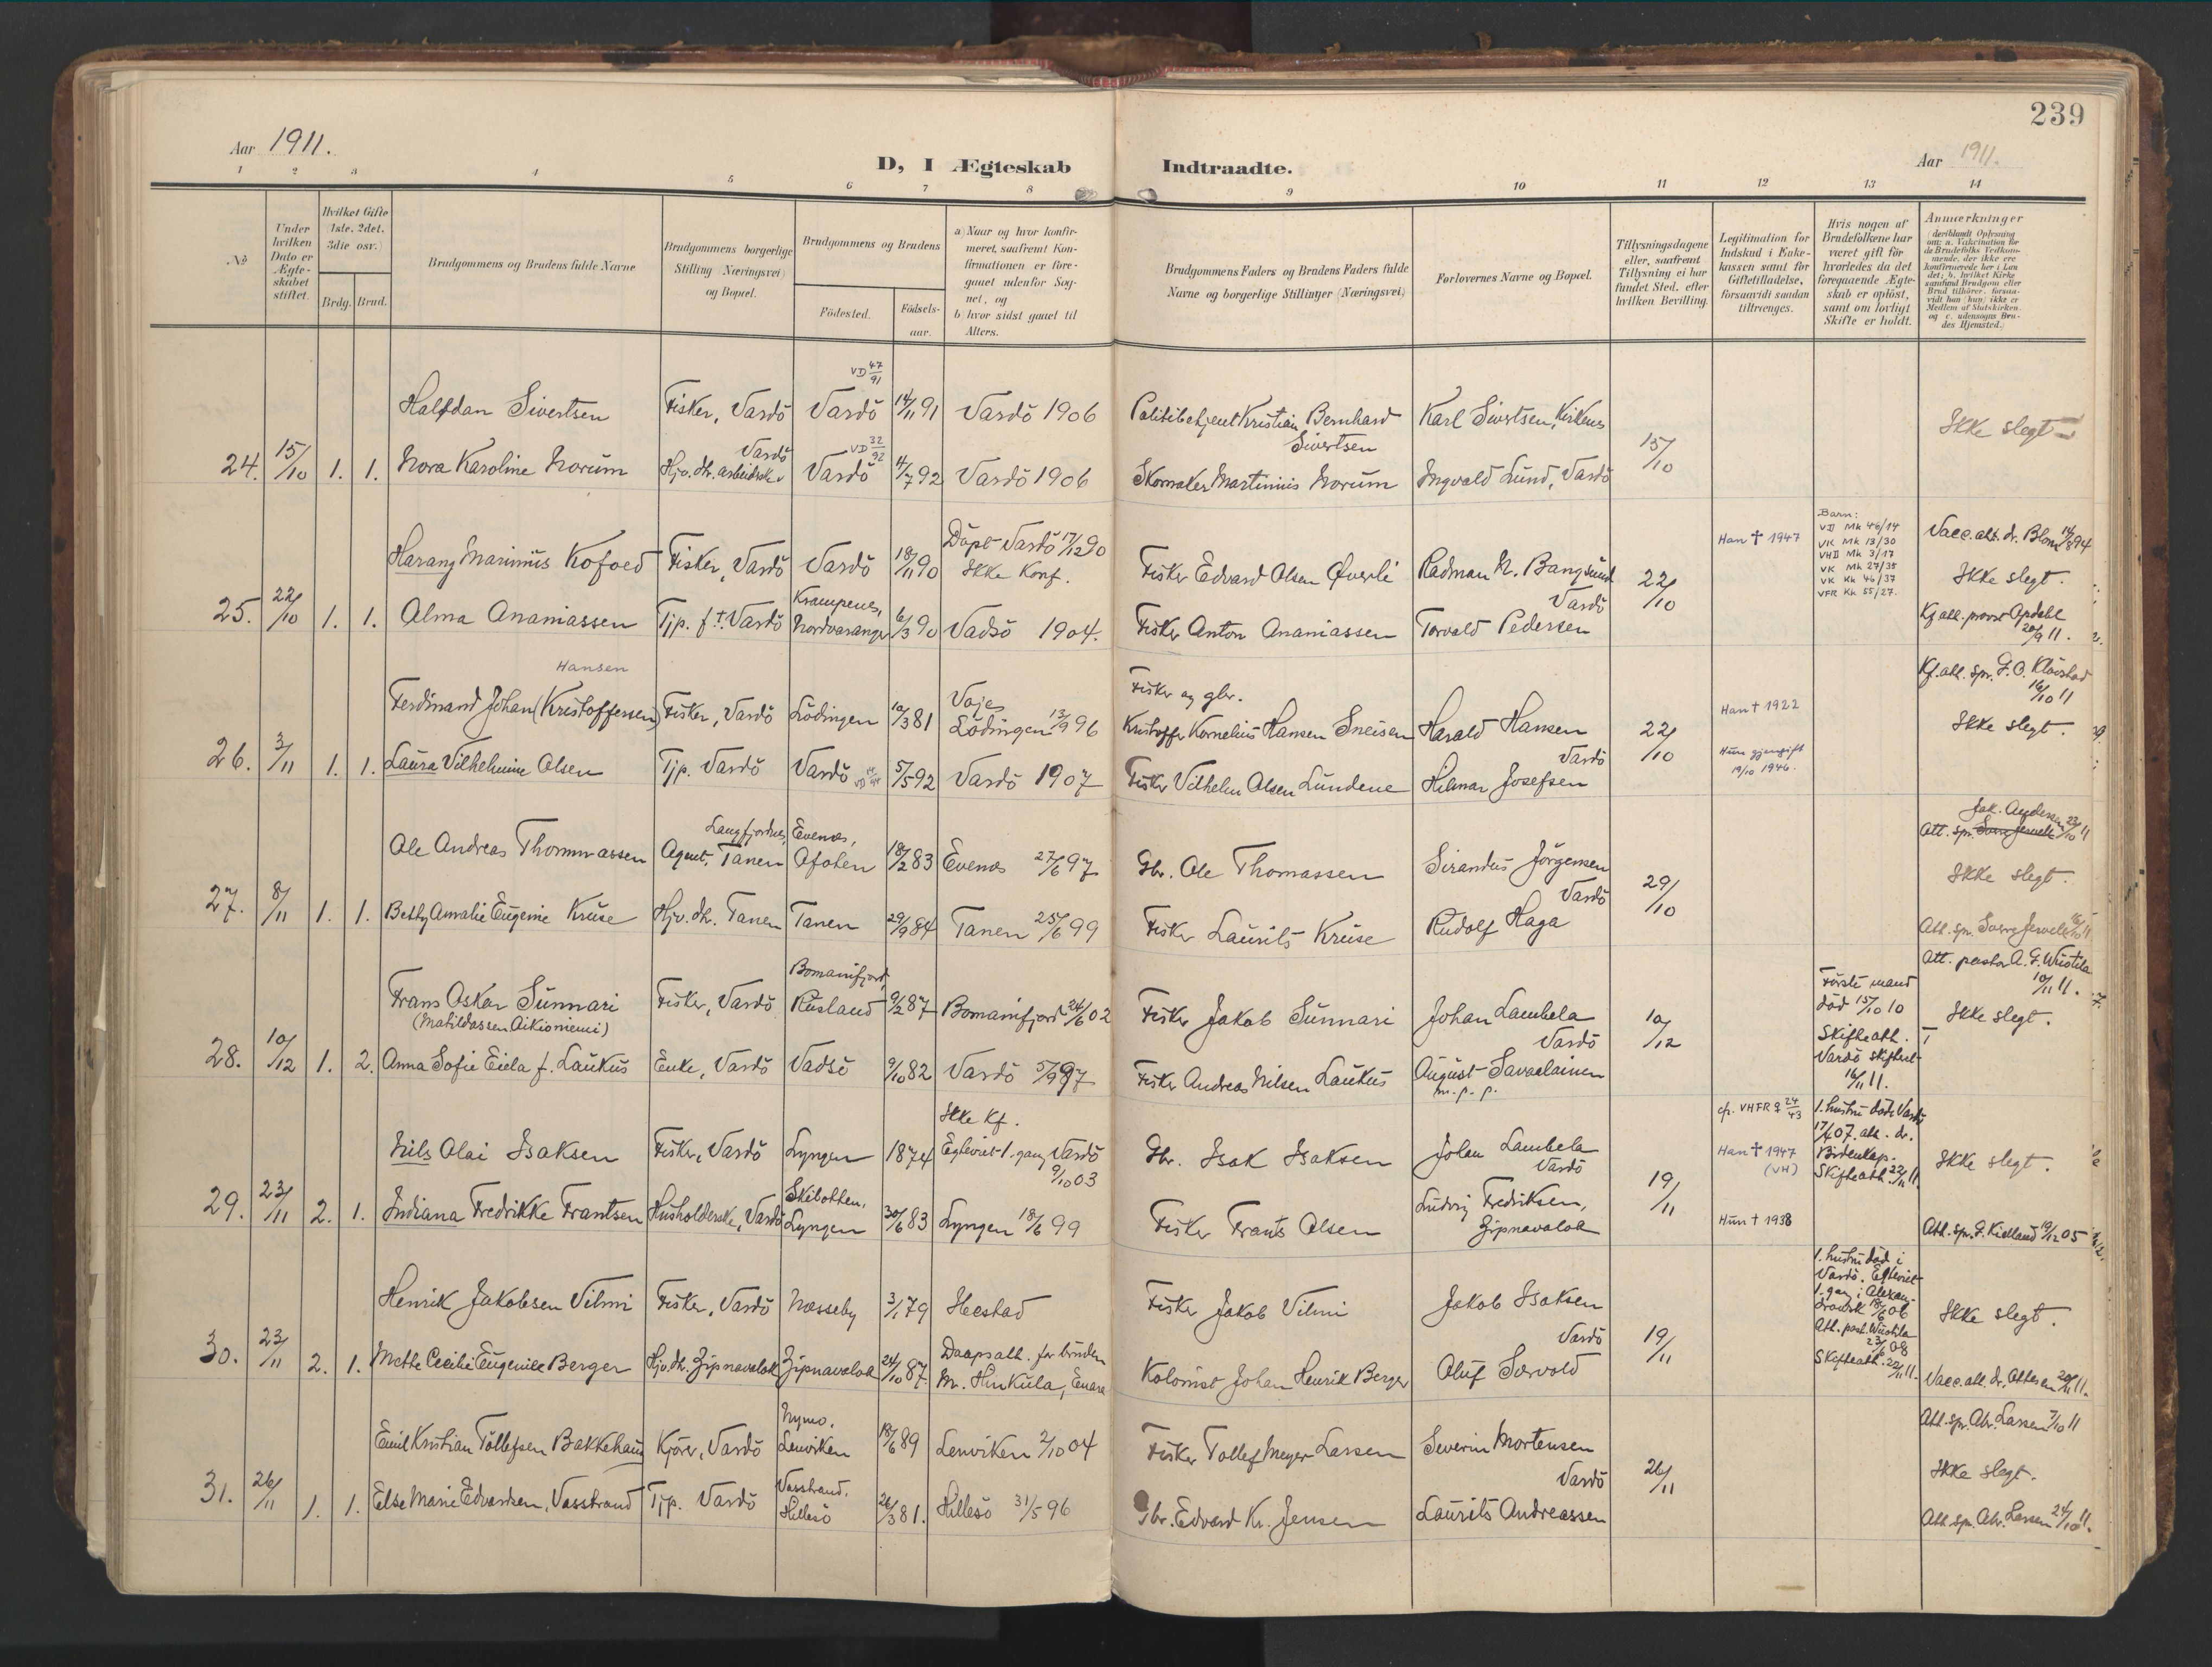 239
Aar 1911.
D, I Ægteskab Indtraadte.
Aar 1911.
1 2 3 4 5 6 7 8 9 10 11 12 13 14
No
Under hvilken Dato er Ægteskabet stiftet.
Hvilket Gifte (1ste, 2det, 3die osv.)
Brdg. Brud.
Brudgommens og Brudens fulde Navne
Brudgommens borgerlige Stilling (Næringsvei) og Bopæl.
Brudgommens og Brudens
Födested. Födselsaar.
a) Naar og hvor konfirmeret, saafremt Konfirmationen er foregaaet udenfor Sognet, og
b) hvor sidst gaaet til Alters.
Brudgommens Faders og Brudens Faders fulde Navne og borgerlige Stillinger (Næringsvei)
Forlovernes Navne og Bopæl.
Tillysningsdagene eller, saafremt Tillysning ei har fundet Sted, efter hvilken Bevilling.
Legitimation for Indskud i Enkekassen samt for Giftetilladelse, forsaavidt saadan tiltrænges.
Hvis nogen af Brudefolkene har været gift för hvorledes da det foregaaende Ægteskab er oplöst, samt om lovligt Skifte er holdt.
Anmærkninger
(deriblandt Oplysning om: a. Vakcination for de Brudefolks Vedkommende, der ikke ere konfirmerede her i Landet; b. hvilket Kirkesamfund Brudgom eller Brud tilhörer, forsaavidt han (hun) ikke er Medlem af Statskirken, og c. udensogns Brudes Hjemsted.)
VD 47/91
Halfdan Sivertsen Fisker, Vardö Vardö 14/11 91 Vardö 1906 Politibetjent Kristian Bernhard Sivertsen Karl Sivertsen, Kirkenes Ikke slegt
24. 15/10 1. 1. Nora Karoline Norum Vardö Hjv. dtr. Vardö VD 32/92 4/7 92 Vardö 1906 Skomaker Martinius Norum Ingvald Lund, Vardö 15/10
Harang Marinius Kofoed Fisker, Vardö Vardö 18/11 90 Döpt Vardö 17/12 90 Ikke Konf. Fisker Edvard Olsen Øverli Radman N. Bangsund Vardö Han † 1947
Barn:
VD Mk 46/14
VK Mk 13/30
VHD Mk 3/17
VK Mk 27/35
VK Kk 46/37
VFR Kk 55/27.
Vacc. att. dr. Blom 14/8 94
Ikke slegt.
25. 22/10 1. 1. Alma Ananiassen Tjp. f.t. Vardö Krampenes, Nordvaranger 6/3 90 Vadsö 1904. Fisker Anton Ananiassen Torvald Pedersen 22/10
Kf att. provst Opdahl 20/9 11.
Hansen
Ferdinand Johan (Kristoffersen) Fisker, Vardö Lödingen 10/3 81 Vajes Lödingen 13/9 96 Fisker og gbr. Kristoffer Kornelius Hansen Sneisen Harald Hansen Vardö Han † 1922
Kf. att. spr. G. O. Klövstad 16/10 11
Ikke slegt.
26. 3/11 1. 1. Laura Vilhelmine Olsen Tjp. Vardö Vardö 5/5 92 Vardö 1907 Fisker Vilhelm Olsen Lundene Hilmar Josefsen 22/10 Hun gjengift 19/10 1946.
Ole Andreas Thommassen Agent, Langfjordnes, Tanen Evenes, Ofoten 18/2 83 Evenes 27/6 97 Gbr. Ole Thomassen Sirandus Jörgensen Vardö
Att. spr. Jak. Andersen 23/10 11
Ikke slegt.
27. 8/11 1. 1. Betty Amalie Eugenie Kruse Hjv. dtr. Tanen Tanen 29/9 84 Tanen 25/6 99 Fisker Laurits Kruse Rudolf Haga 29/10
Frans Oskar Sunnari Fisker, Vardö Bomanifjord, Rusland 9/2 87 Bomanifjord 24/6 02 Fisker Jakob Sunnari Johan Lambela Vardö
(Matildassen Aikioniemi)
Förste mand död 15/10 10
Skifteatt. f Vardö skifteret 16/11 11.
Att. pastor A. G. Wiistila 10/11 11.
Ikke slegt.
28. 10/12 1. 2. Anna Sofie Eiela f. Laukus Enke, Vardö Vadsö 9/10 82 Vardö 5/9 97 Fisker Andreas Nilsen Laukus August Savaelainen m. p. p. 10/12
Nils Olai Isaksen Fisker, Vardö Lyngen 1874 Ikke Kf. Egteviet 1. gang Vardö 9/10 03 Gbr. Isak Isaksen Johan Lambela Vardö
cfr. VHFR 9 24/43
Han † 1947 (VH)
1. hustru död Vardö 17/4 07. att. dr. Bredenkap.
Skifteatt. 22/11 11.
Ikke slegt.
29. 23/11 2. 1. Indiana Fredrikke Frantsen Husholderske, Vardö Skibotten, Lyngen 30/6 83 Lyngen 18/6 99 Fisker Frants Olsen Ludvig Fredriksen, Zipnavolok 19/11 Hun † 1938
Att. spr. G. Kielland 19/12 05
Henrik Jakobsen Vilmi Fisker, Vardö Næsseby 3/1 79 Heestad Fisker Jakob Vilmi Jakob Isaksen Vardö
1. hustru död i Vardö. Egteviet 1. gang i Alexandrovsk 18/6 06
Att. past. Wiistila 23/6 08
Skifteatt. 22/11 11.
Ikke slegt.
30. 23/11 2. 1. Mette Cecilie Eugenie Berger Hjv. dtr. Zipnavolok Zipnavolok 24/10 87. Daapsatt. for bruden M. Hinkula, Enare Kolonist Johan Henrik Berger Oluf Sörvold 19/11
Vacc. att. dr. Ottesen 20/11 11.
Emil Kristian Tollefsen Bakkehaug Kjörer, Vardö Nymo, Lenviken 18/6 89 Lenviken 2/10 04 Fisker Tollef Meyer Larsen Severin Mortensen Vardö
Att. spr. Abr. Larsen 7/10 11
Ikke slegt.
31. 26/11 1. 1. Else Marie Edvardsen, Vasstrand Tjp. Vardö Vasstrand, Hillesö 26/3 81. Hillesö 31/5 96 Gbr. Edvard Kr. Jensen Laurits Andreassen 26/11
Att. spr. Abr. Larsen 24/10 11.